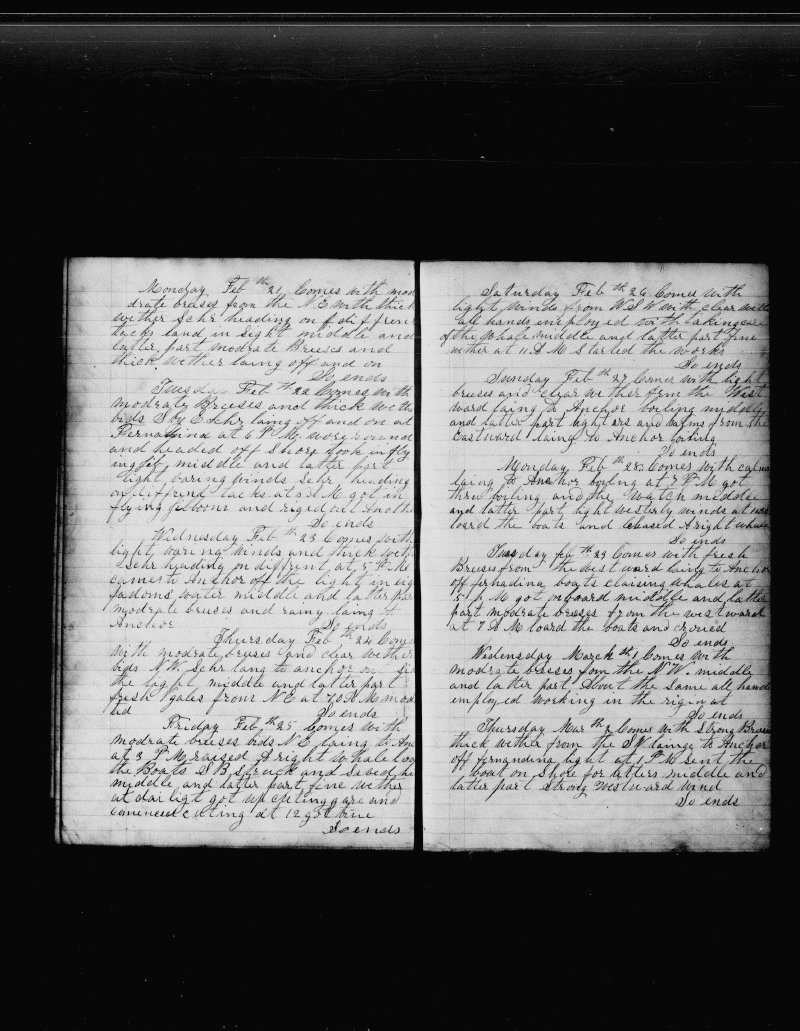 Monday Feb th 21 Comes with mod
drate breses from the N E with thick
wether Schr heading on difffren
tacks land in Sight middle and
latter part modrate Breses and
thick wether laing off and on
So ends
Tuesday Feb th 22 Comes with
modrate Breeses and thick weth
bids S by E Schr laing off and on at
Fernandina at 6 P M
and headed off Shore took in fly
ing jib middle and latter part
light baring winds Schr heading
on diffrend tacks at M got in
flying jibboom and riged out Anothe
So ends
Wednesday Feb th 23 Comes with
light varing winds and thick weth
Schr heading on diffrent at 5 P M
came to Anchor off the light in eig
fadoms water middle and latter par
modrate breses and rainy laing at
Anchor So ends
Thursday Feb th 24 Comes
with modrate breses and clear wether
bids N W. Schr lang to anchor
the light middle and latter part
fresh gales from N E at 7 A M mod
ed So ends
Friday Feb th 25 Comes with
modrate breeses bids N E laing to Anc
at 3 P M raised A right Whale low
the Boats S B struck and Saved he
middle and latter part fine wether
at dai ligt got up cuting gare and
Comenced cuting at 12 got thrue
So ends
Saturday Feb th 26 Comes with
light winds from W S W with clear weth
all hands employed with takingcare
of the Whale middle and latter part fine
wether at 11 A M Started the works
So ends
Sunday Feb th 27 Comes with light
breses and clear wether from the West
ward laing to Anchor boiling middle
and latter part light ars and calms from the
Eastward laing to Anchor boiling
So ends
Monday Feb th 28 Comes with calms
laing to Anchor boiling at 7 P M got
threw boiling and the watch middle
and latter part light westerly winds at
loard the boats and Chased A right whale
So ends
Tuesday feb th 29 Comes with fresh
Breses from the west ward laing to Anchor
off fernading boats chaising whales at
5 P M got onboard middle and latter
part modrate breses from the west ward
at 7 A M loard the boats and
So ends
Widensday March th 1 Comes with
modrate breeses fom the N W. middle
and latter part About the same all hands
employed working in the rigin at
So ends
Thursday Mar th 2 Comes with Strong Breses
thick wether from the S W lainge to Anchor
off fernanding light at 1 P M sent the
boat on Shore for letters middle and
latter part strong westward wind
So ends